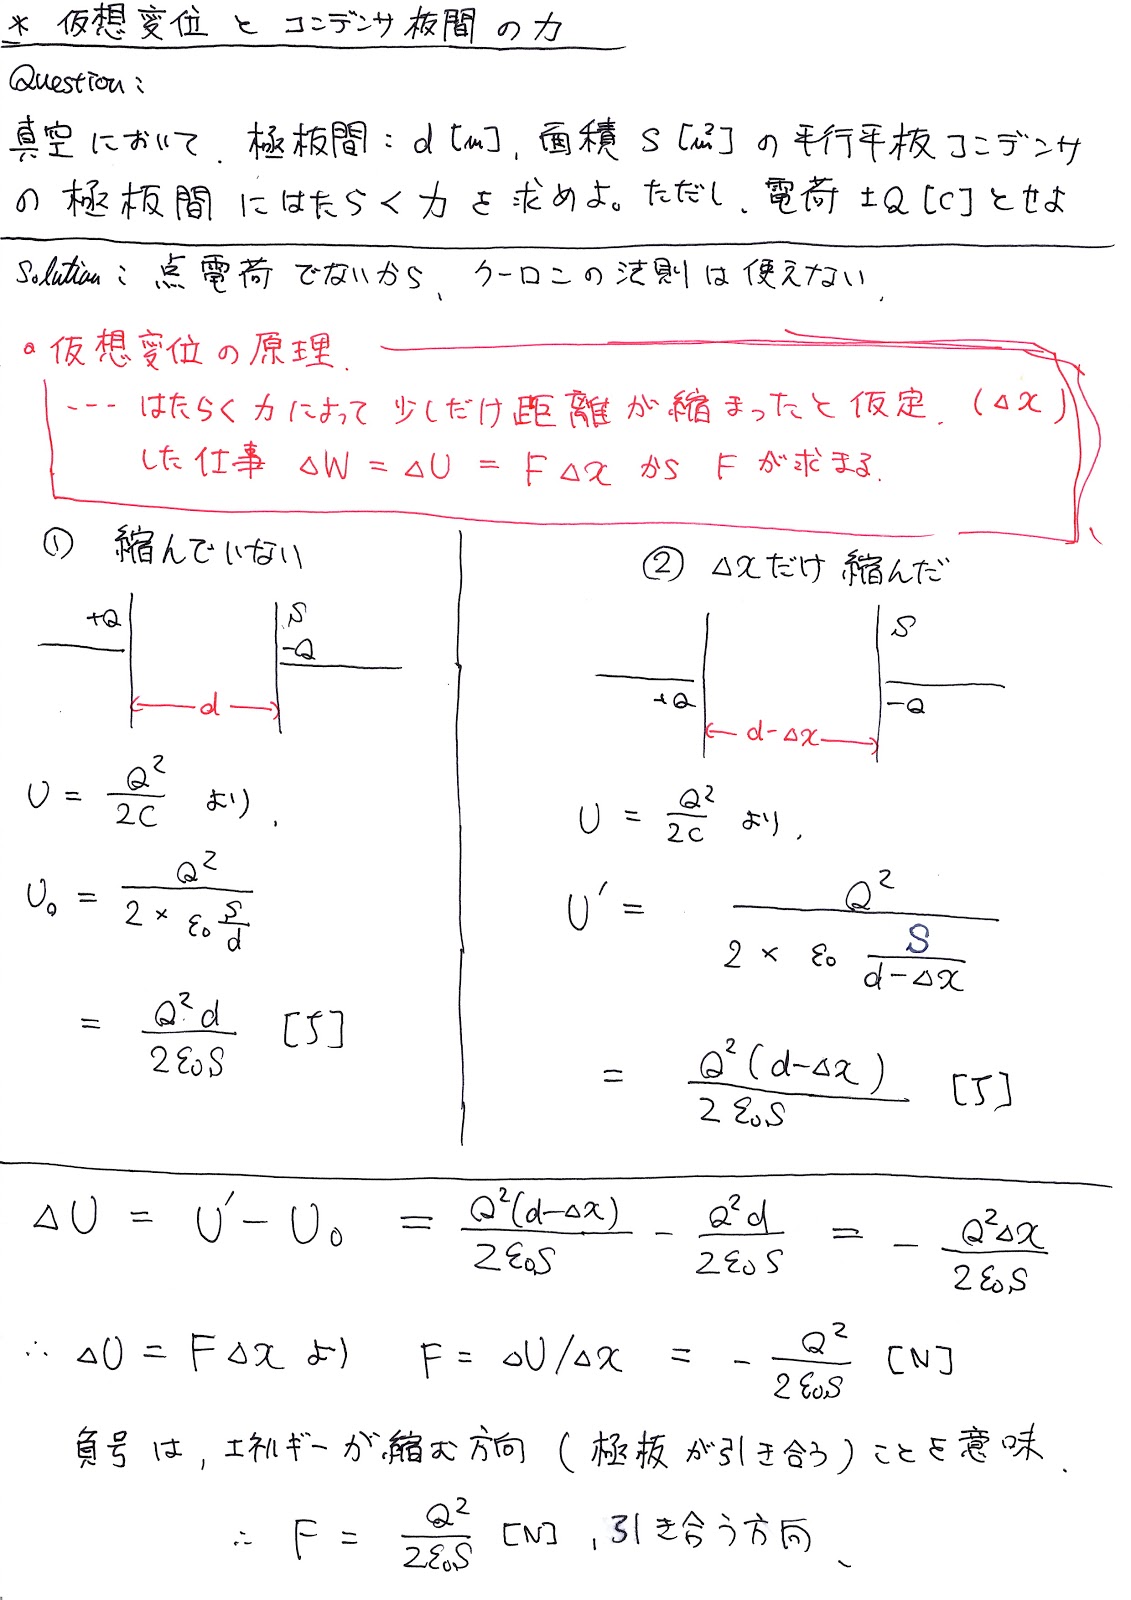 * 仮想変位とコンデンサ板間の力
Question:
真空において、極板間: d [m], 面積 S [m²] の平行平板コンデンサ
の極板間にはたらく力を求めよ。ただし、電荷 ±Q [C] とせよ
Solution: 点電荷でないから、クーロンの法則は使えない、
・仮想変位の原理.
--- はたらく力によって少しだけ距離が縮まったと仮定. (Δx)
した仕事 ΔW = ΔU = FΔx から F が求まる.
① 縮んでいない
+Q
S
-Q
d
U = Q²/2C より、
U₀ = Q²/(2 × ε₀ S/d)
= Q²d/2ε₀S [J]
② Δxだけ縮んだ
S
+Q
-Q
d-Δx
U = Q²/2C より、
U' = Q²/(2 × ε₀ S/(d-Δx))
= Q²(d-Δx)/2ε₀S [J]
ΔU = U' - U₀ = Q²(d-Δx)/2ε₀S - Q²d/2ε₀S = - Q²Δx/2ε₀S
∴ ΔU = FΔx より F = ΔU/Δx = - Q²/2ε₀S [N]
負号は, エネルギーが縮む方向 (極板が引き合う) ことを意味.
∴ F = Q²/2ε₀S [N], 引き合う方向、